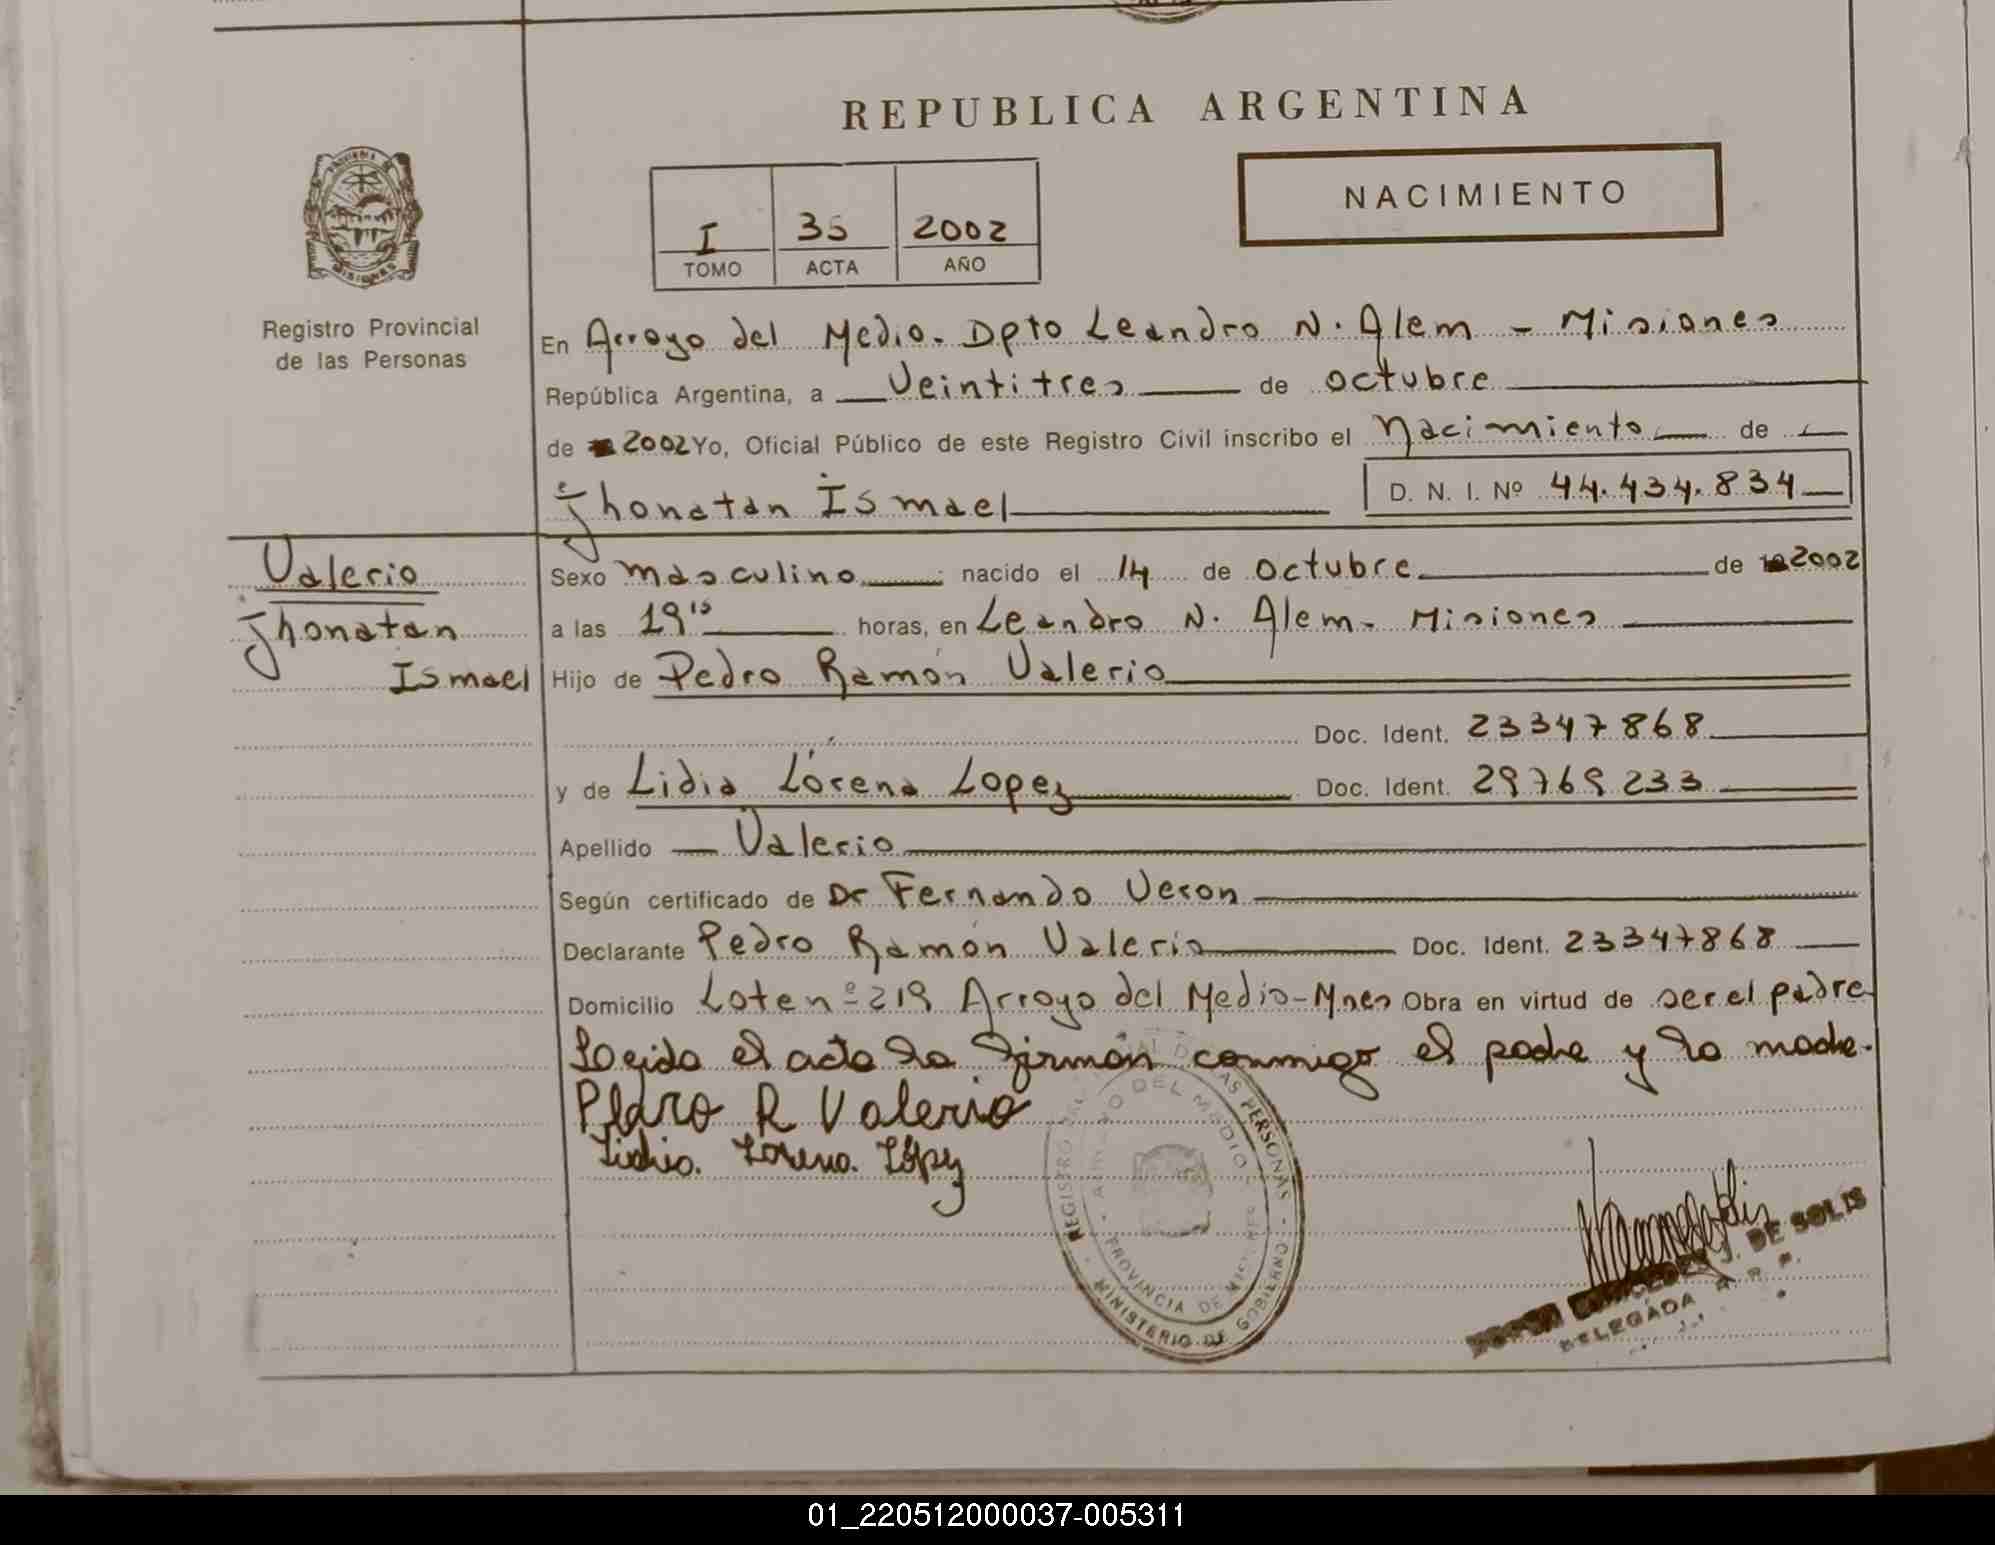 REPUBLICA ARGENTINA
NACIMIENTO
I 35 2002
TOMO ACTA AÑO
Registro Provincial
de las Personas
En Arroyo del Medio. Dpto Leandro N. Alem - Misiones
República Argentina, a Veintitres de octubre
de 2002 Yo, Oficial Público de este Registro Civil inscribo el Nacimiento de
Jhonatan Ismael D. N. I. Nº 44.434.834
Valerio
Jhonatan
Ismael
Sexo masculino nacido el 14 de octubre de 2002
a las 19 15 horas, en Leandro N. Alem - Misiones
Hijo de Pedro Ramón Valerio
Doc. Ident. 23347868
y de Lidia Lorena Lopez Doc. Ident. 29769233
Apellido Valerio
Según certificado de Dr Fernando Veron
Declarante Pedro Ramón Valerio Doc. Ident. 23347868
Domicilio Lote nº 219 Arroyo del Medio - Mnes Obra en virtud de ser el padre
Leida el acta la firman conmigo el padre y la madre.
Pedro R Valerio
Lidia Lorena López
REGISTRO PROVINCIAL DE LAS PERSONAS
ARROYO DEL MEDIO
PROVINCIA DE MISIONES
MINISTERIO DE GOBIERNO
J. DE SOLIS
DELEGADA R. P.
01_220512000037-005311